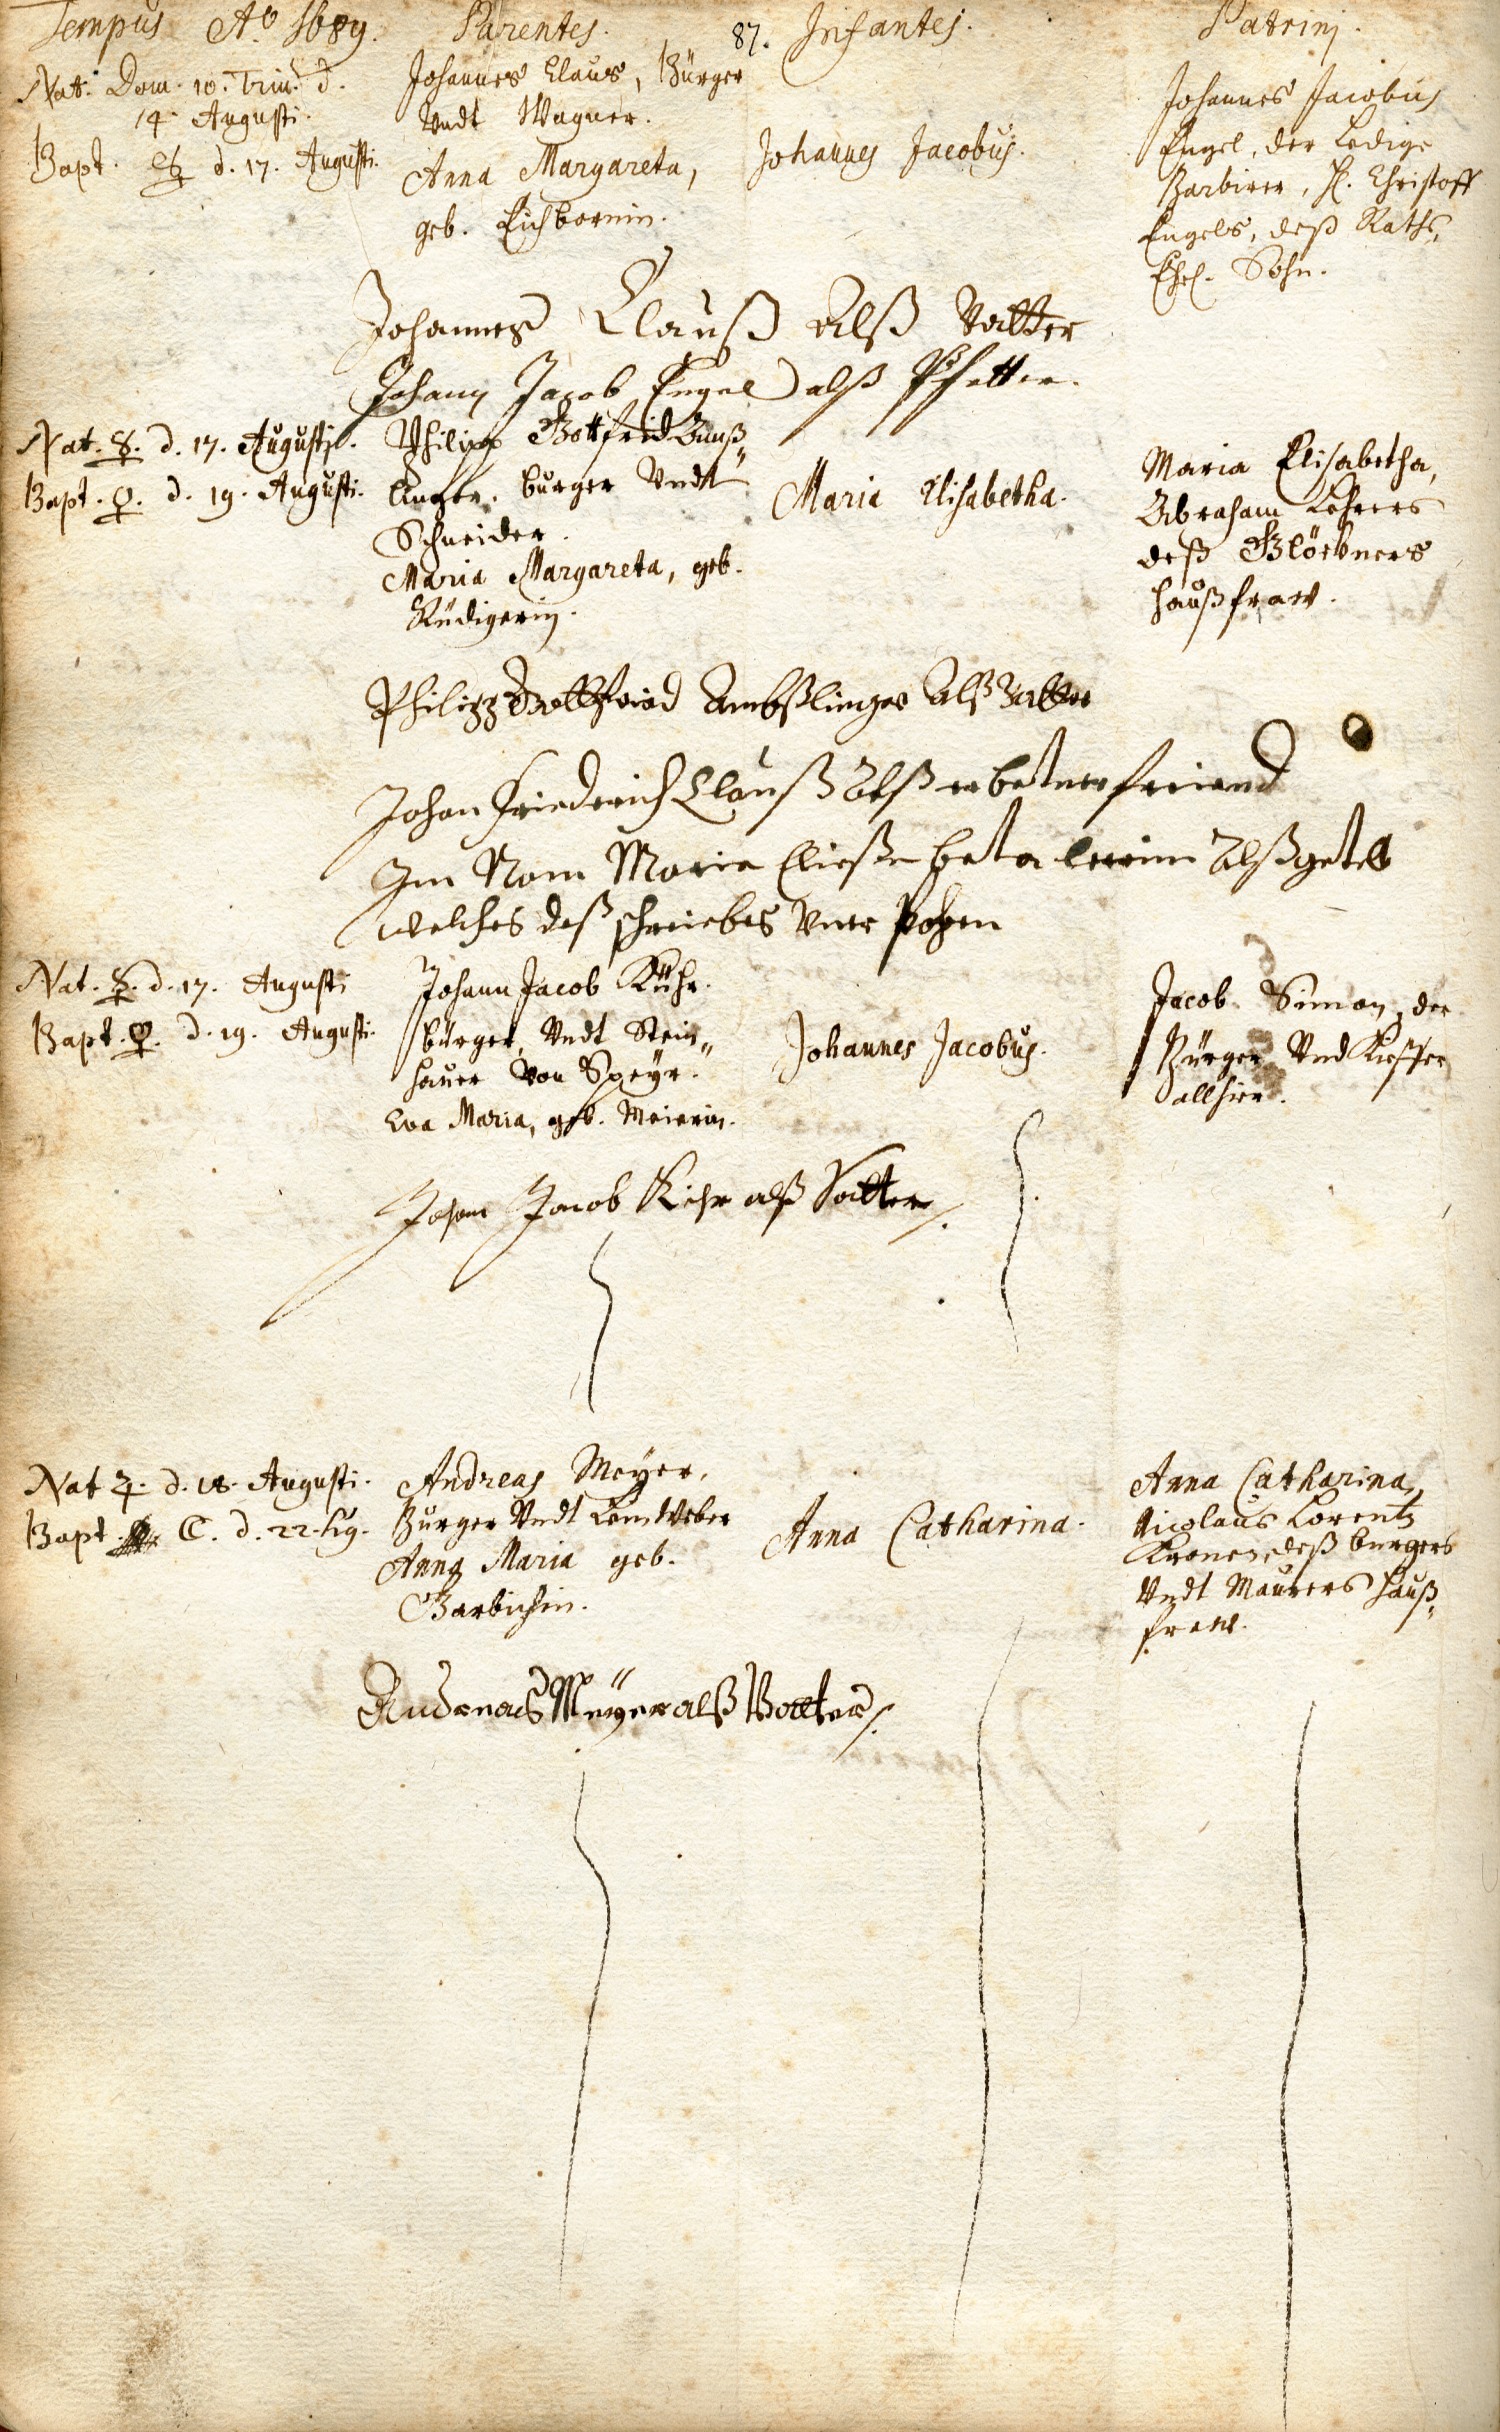 Tempus Aº 1689. Parentes. 87. Infantes. Patrini.
Nat. Dom. 10. Trin. d.
14. Augusti.
Bapt. ☿ d. 17. Augusti.
Johannes Claus, Bürger
Vndt Wagner.
Anna Margareta,
geb. Eichbornin.
Johannes Jacobus.
Johannes Jacobus
Engel, der Ledige
Barbirer, H. Christoff
Engels, deß Raths,
Ehel. Sohn.
Johannes Clauß Alß Vatter
Johann Jacob Engel alß Pfetter.
Nat. ☿. d. 17. Augusti.
Bapt. ♀. d. 19. Augusti.
Philipp Gottfrid
burger Vndt
Schneider.
Maria Margareta, geb.
Rüdigerin.
Maria Elisabetha.
Maria Elisabetha,
Abraham Lehrers
deß Glöckners
haußfraw.
Philipp Gottfried Ambßlinger Alß Vatter
Johan Friedrich Clauß Alß erbetner freind
Im Nam Maria Alß getel
welches deß schreibes
Nat. ☿. d. 17. Augusti
Bapt. ♀. d. 19. Augusti.
Johann Jacob Kühr.
bürger, Vndt Stein„
hauer Von Speyr.
Eva Maria, geb. Meierin.
Johannes Jacobus.
Jacob Simon, der
Bürger Vnd Kieffer
allhier.
Johan Jacob Kihr alß Vatter
Nat ♃. d. 18. Augusti.
Bapt. ☾. d. 22. hg.
Andreas Meyer,
Burger Vndt LeinWeber
Anna Maria geb.
Garbichin.
Anna Catharina.
Anna Catharina,
Nicolaus Lorentz
Kronen, deß burgers
Vndt Maurers hauß„
fraw.
Andreas Meyer alß Vatter